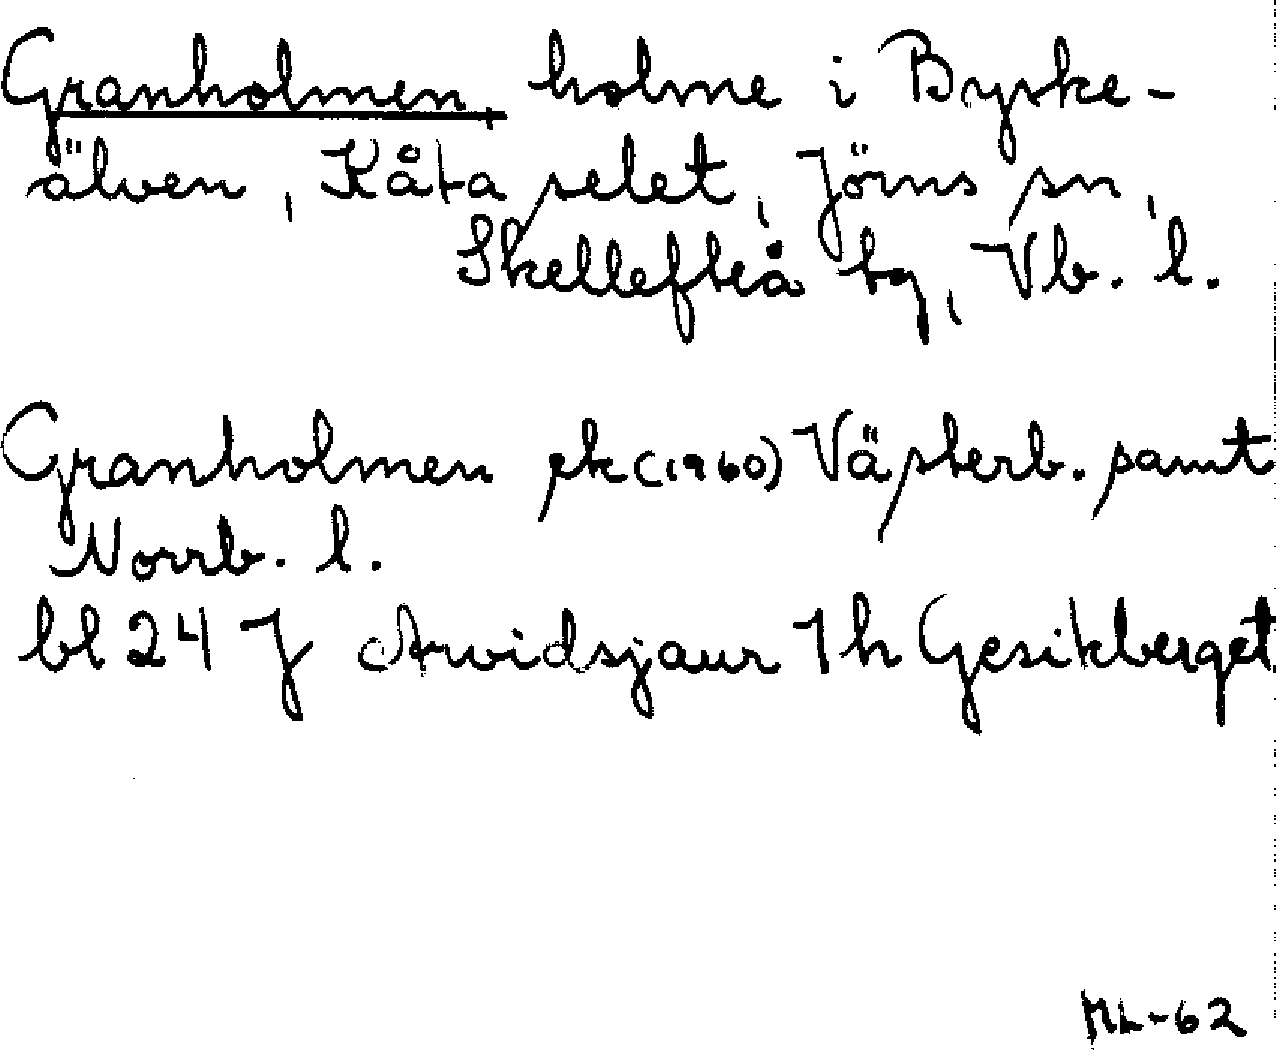 Granholmen, holme i Byske-
älven, Kåtaselet, Jörns sn,
Skellefteå tg, Vb. l.
Granholmen ek (1960) Västerb. samt
Norrb. l.
bl 24 J Arvidsjaur 1h Gesikberget
ML-62